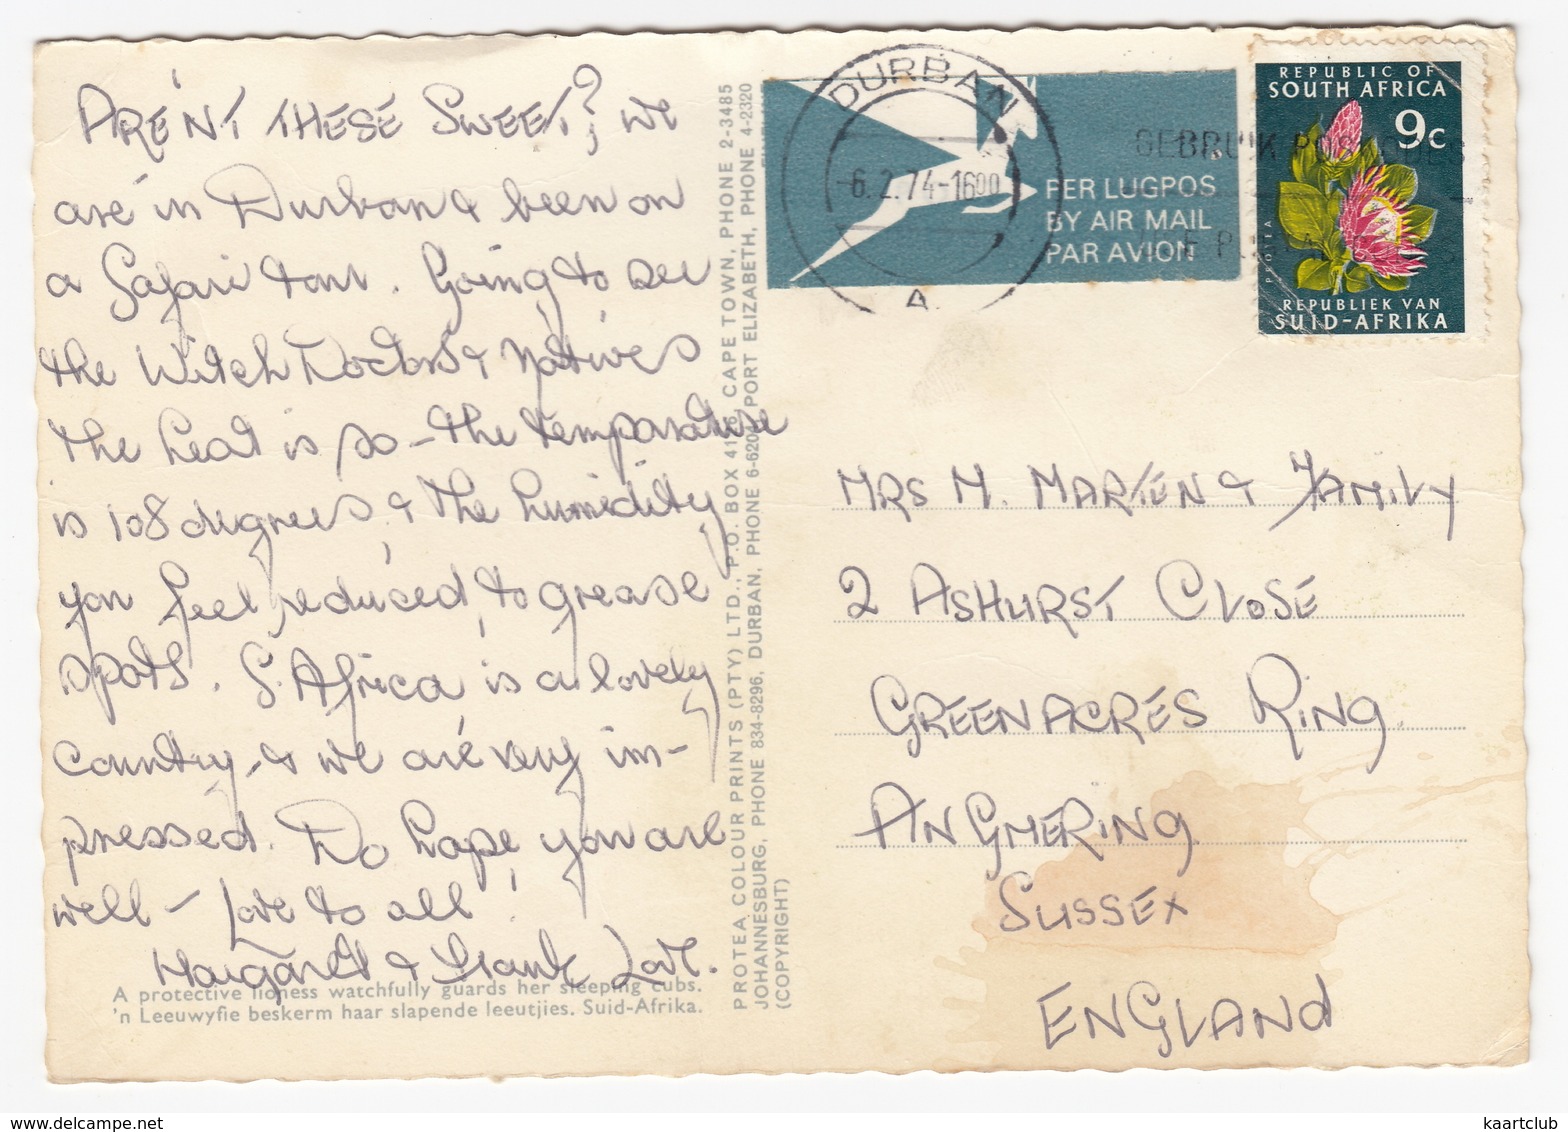 AREN'T THESE SWEET? WE
are in Durban & been on
a Safari tour. Going to see
the Witch Doctors & Natives
The heat is so - the temparature
is 108 degrees, & the humidity
you feel reduced to grease
spots. S. Africa is a lovely
country, & we are very im-
pressed. Do hope you are
well - Love to all
Margaret & Frank Love.
A protective lioness watchfully guards her sleeping cubs.
'n Leeuwyfie beskerm haar slapende leeutjies. Suid-Afrika.
PROTEA COLOUR PRINTS (PTY) LTD., P.O. BOX 4176, CAPE TOWN, PHONE 2-3485
JOHANNESBURG, PHONE 834-8296, DURBAN, PHONE 6-6204, PORT ELIZABETH, PHONE 4-2320
(COPYRIGHT)
DURBAN
-6.2.74-1600
A
PER LUGPOS
BY AIR MAIL
PAR AVION
GEBRUIK
REPUBLIC OF
SOUTH AFRICA
9c
PROTEA
REPUBLIEK VAN
SUID-AFRIKA
MRS M. MARTEN & FAMILY
2 ASHURST CLOSE
GREENACRES RING.
ANGMERING
SUSSEX
ENGLAND
kaartclub